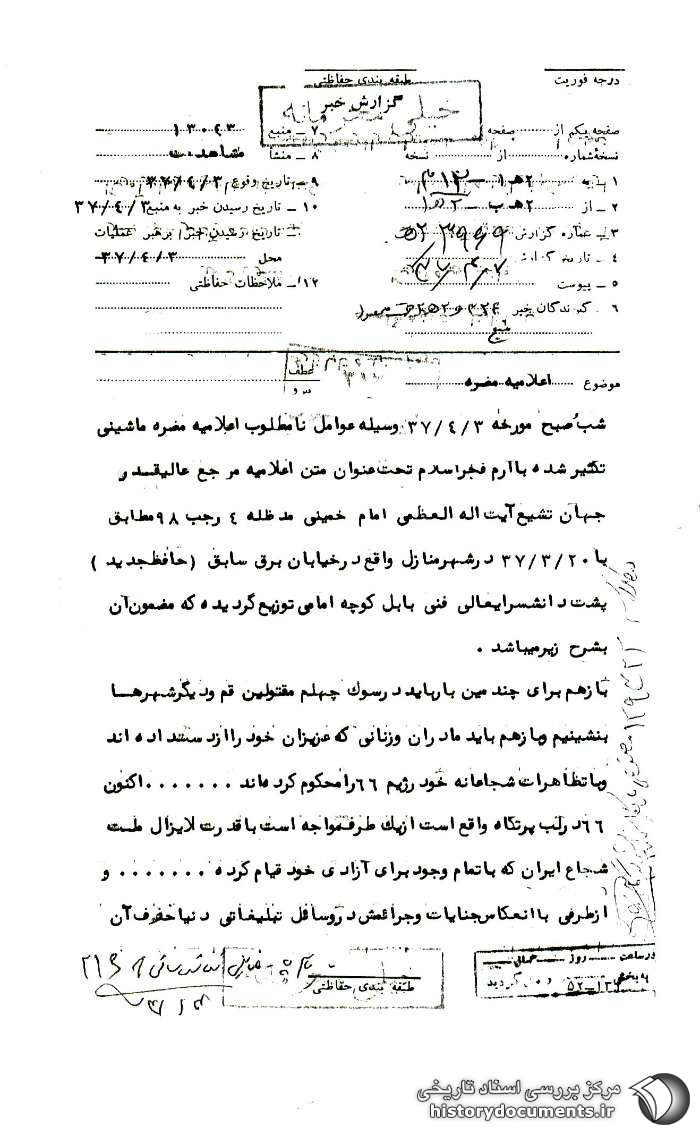 درجه فوریت
طبقه بندی حفاظتی
گزارش خبر
خیلی محرمانه
صفحه یکم از صفحه
۷ ـ منبع ۱۳۰۲۳
نسخه شماره از نسخه
۸ ـ منشأ مشاهدت
۱ ـ به ۲هـ۱
۹ ـ تاریخ وقوع ۳۷/۴/۳
۲ ـ از ۲هـ ب
۱۰ ـ تاریخ رسیدن خبر به منبع ۳۷/۴/۳
۳ ـ شماره گزارش
تاریخ رسیدن خبر برهبر عملیات
۴ ـ تاریخ گزارش
محل ۳۷/۴/۳
۵ ـ پیوست
۱۲ ـ ملاحظات حفاظتی
۶ ـ گیرندگان خبر
منبع
عطف
پیرو
موضوع اعلامیه مضره
شب صبح مورخه ۳۷/۴/۳ وسیله عوامل نامطلوب اعلامیه مضره ماشینی
تکثیر شده با آرم فجر اسلام تحت عنوان متن اعلامیه مرجع عالیقدر
جهان تشیع آیت اله العظمی امام خمینی مدظله ۴ رجب ۹۸ مطابق
با ۳۷/۳/۲۰ در شهر منازل واقع در خیابان برق سابق (حافظ جدید)
پشت دانشسرایعالی فنی بابل کوچه امامی توزیع گردیده که مضمون آن
بشرح زیر میباشد .
بازهم برای چندمین بار باید در سوک چهلم مقتولین قم و دیگر شهرها
بنشینیم و بازهم باید مادران و زنانی که عزیزان خود را از دست داده اند
و با تظاهرات شجاعانه خود رژیم ۶۶ را محکوم کرده اند ....... اکنون
۶۶ در لب پرتگاه واقع است از یک طرف مواجه است با قدرت لایزال ملت
شجاع ایران که با تمام وجود برای آزادی خود قیام کرده ....... و
از طرفی با انعکاس جنایات و جرائمش در وسائل تبلیغاتی دنیا خفرف آن
طبقه بندی حفاظتی
در ساعت روز
به بخش ۵۲ـ۱۳ وارد گردید
مرکز بررسی اسناد تاریخی
historydocuments.ir